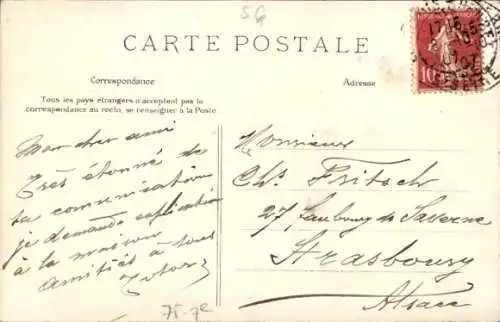 56
CARTE POSTALE
Correspondance
Adresse
Tous les pays étrangers n'acceptent pas la
correspondance au recto, se renseigner à la Poste.
Mon cher ami
Très étonné de
ta communication
je demande explication
à la maison
Amitiés à tous
Monsieur
Ch. Fritsch
27 Faubourg de Saverne
Strasbourg
Alsace
75-7e
10